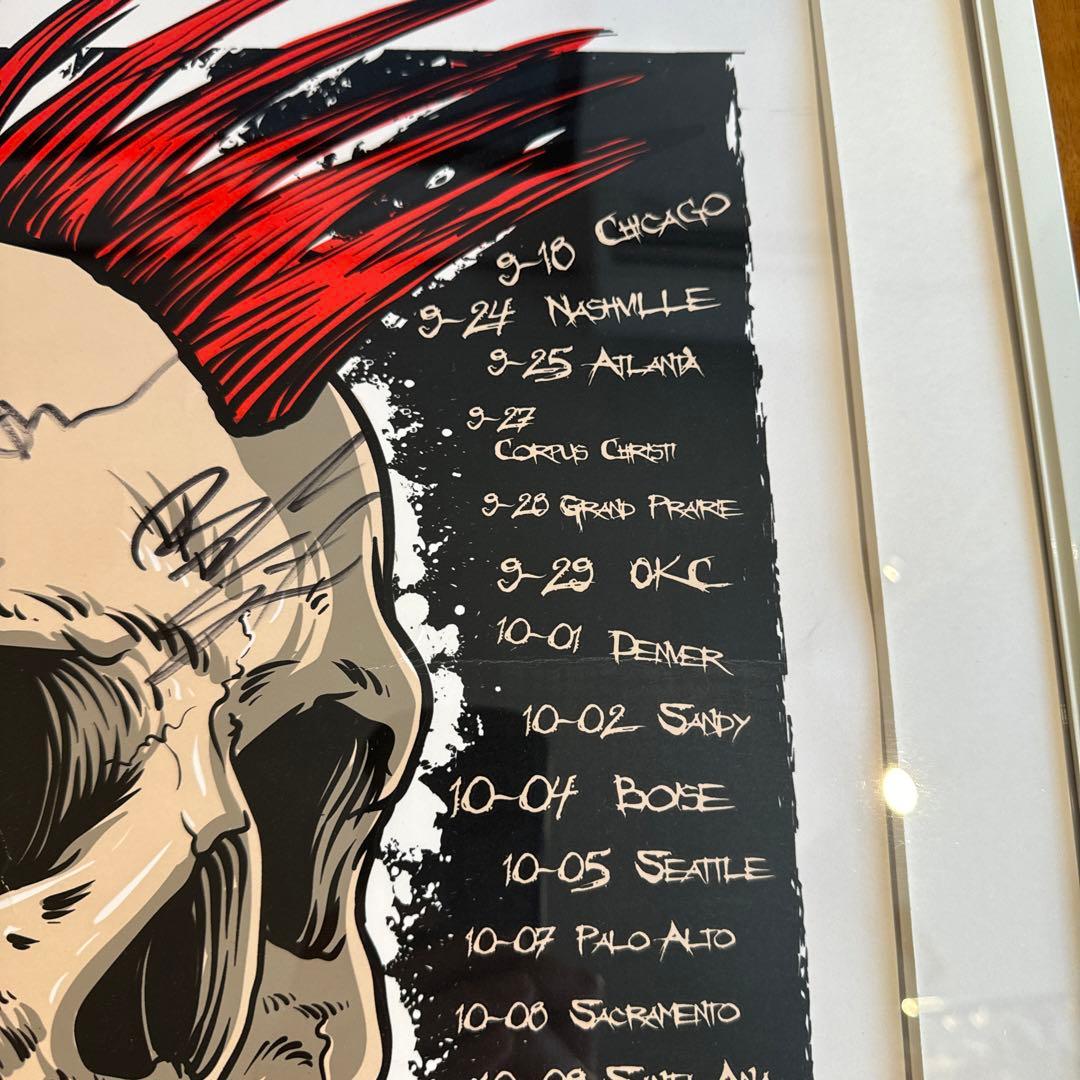 9-18 CHICAGO
9-24 NASHVILLE
9-25 ATLANTA
9-27
CORPUS CHRISTI
9-28 GRAND PRAIRIE
9-29 OKC
10-01 DENVER
10-02 SANDY
10-04 BOISE
10-05 SEATTLE
10-07 PALO ALTO
10-08 SACRAMENTO
10-09 SANTA ANA